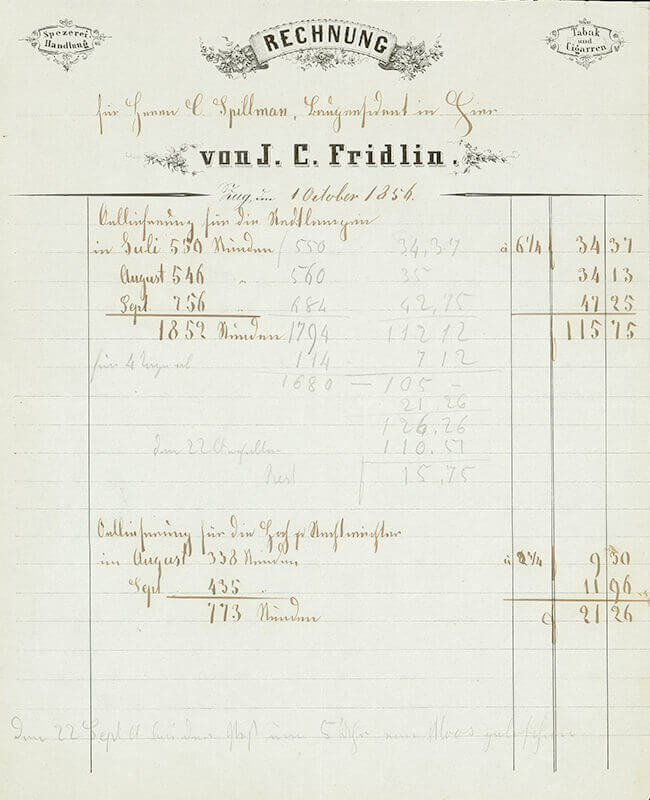 Spezerei Handlung
RECHNUNG
Tabak und Cigarren
für Herrn C. Spillman, Baupresident in Hier
von J. C. Fridlin.
Zug, im 1 October 1856.
Oellieferung für die Stadtlampen
in Juli 550 Stunden / 550 34,37 à 6 1/4 34 37
August 546 " 560 35 34 13
Sept. 756 " 684 42,75 47 25
1852 Stunden 1794 112 12 115 75
für 4 114 7 12
1680 — 105 —
21 26
126,26
den 22 110.51
Rest 15,75
Oellieferung für die Hoch & Nachtwächter
im August 338 Stunden à 2 3/4 9 30
Sept 435 " 11 96
773 Stunden 21 26
den 22 Sept um 5 Uhr